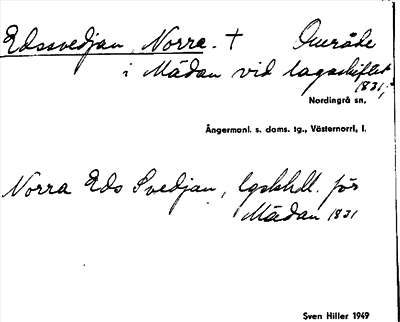 Edssvedjan, Norra. † Område
i Mädan vid lagaskiftet
1831,
Nordingrå sn,
Ångermanl. s. doms. tg., Västernorrl. l.
Norra Eds Svedjan, lgskhdl. för
Mädan 1831
Sven Hiller 1949